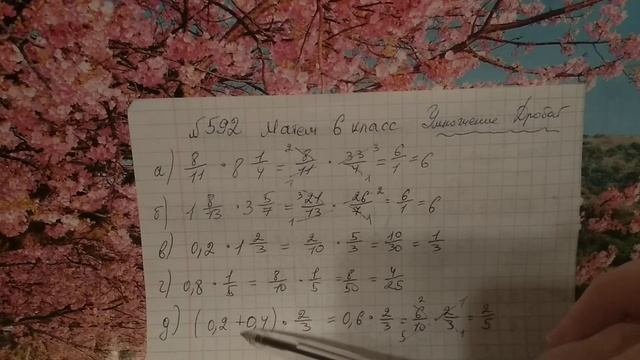 №592 Матем 6 класс Умножение Дробей
а) 8/11 · 8 1/4 = 8/11 · 33/4 = 6/1 = 6
б) 1 8/13 · 3 5/7 = 21/13 · 26/7 = 6/1 = 6
в) 0,2 · 1 2/3 = 2/10 · 5/3 = 10/30 = 1/3
г) 0,8 · 1/5 = 8/10 · 1/5 = 8/50 = 4/25
д) (0,2 + 0,4) · 2/3 = 0,6 · 2/3 = 6/10 · 2/3 = 2/5